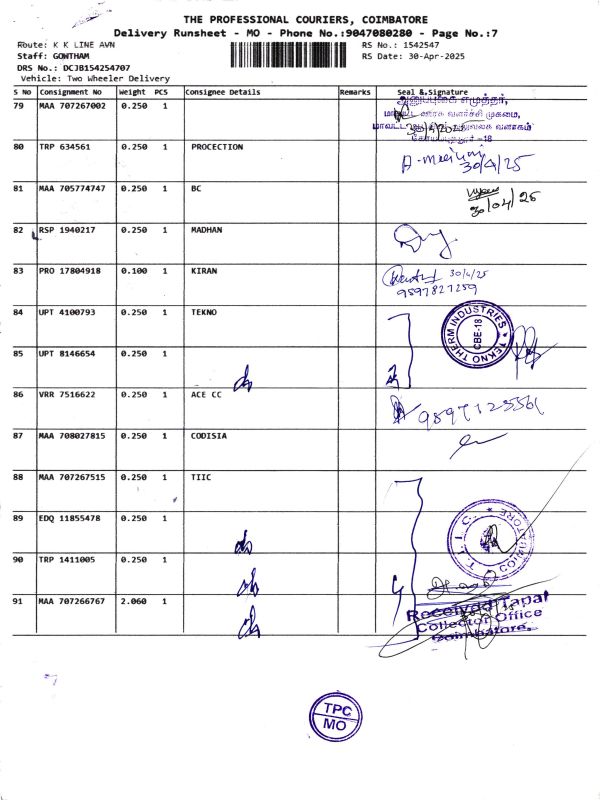 THE PROFESSIONAL COURIERS, COIMBATORE
Delivery Runsheet - MO - Phone No.:9047080280 - Page No.:7
Route: K K LINE AVN
RS No.: 1542547
Staff: GOWTHAM
RS Date: 30-Apr-2025
DRS No.: DCJB154254707
Vehicle: Two Wheeler Delivery
S No Consignment No Weight PCS Consignee Details Remarks Seal & Signature
79 MAA 707267002 0.250 1
80 TRP 634561 0.250 1 PROCECTION
30/4/25
81 MAA 705774747 0.250 1 BC
30/04/25
82 RSP 1940217 0.250 1 MADHAN
83 PRO 17804918 0.100 1 KIRAN
30/4/25
9597827259
84 UPT 4100793 0.250 1 TEKNO
TEKNO THERM INDUSTRIES
CBE-18
85 UPT 8146654 0.250 1
86 VRR 7516622 0.250 1 ACE CC
87 MAA 708027815 0.250 1 CODISIA
88 MAA 707267515 0.250 1 TIIC
89 EDQ 11855478 0.250 1
T.I.I.C.
90 TRP 1411005 0.250 1
91 MAA 707266767 2.060 1
Received Tapal
Collector Office
Coimbatore.
TPC
MO